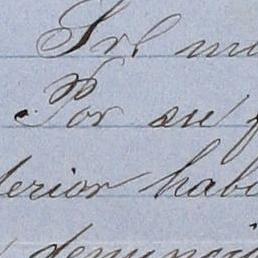 Srl m
Por su f
terior habi
denuncia